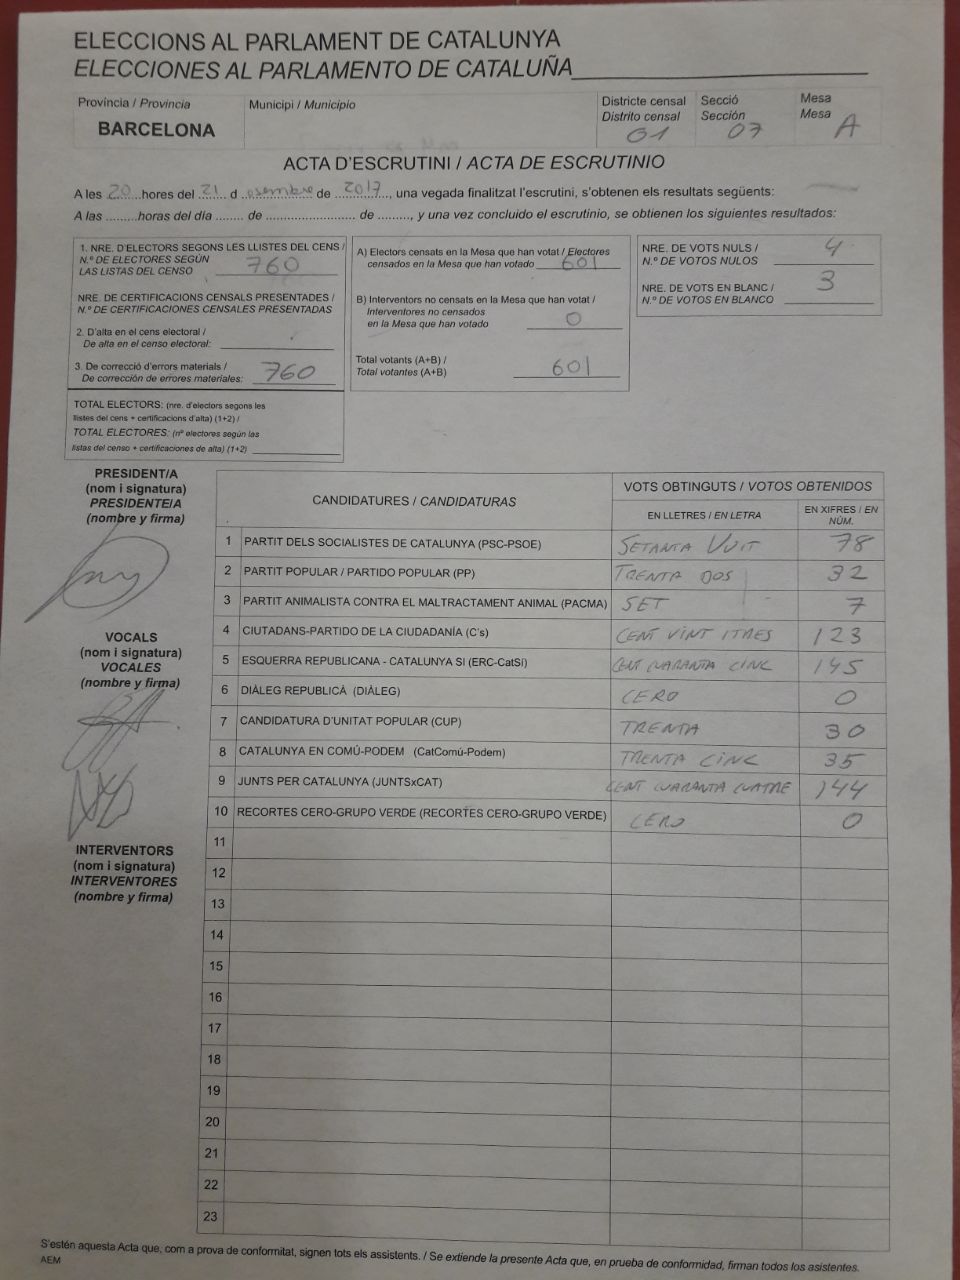 ELECCIONS AL PARLAMENT DE CATALUNYA
ELECCIONES AL PARLAMENTO DE CATALUÑA
Província / Provincia
BARCELONA
Municipi / Municipio
Districte censal
Distrito censal
01
Secció
Sección
07
Mesa
Mesa
A
ACTA D'ESCRUTINI / ACTA DE ESCRUTINIO
A les 20 hores del 21 d esembre de 2017, una vegada finalitzat l'escrutini, s'obtenen els resultats següents:
A las .........horas del día ....... de ....................... de ........, y una vez concluido el escrutinio, se obtienen los siguientes resultados:
1. NRE. D'ELECTORS SEGONS LES LLISTES DEL CENS /
N.º DE ELECTORES SEGÚN
LAS LISTAS DEL CENSO 760
NRE. DE CERTIFICACIONS CENSALS PRESENTADES /
N.º DE CERTIFICACIONES CENSALES PRESENTADAS
2. D'alta en el cens electoral /
De alta en el censo electoral:
3. De correcció d'errors materials /
De corrección de errores materiales: 760
TOTAL ELECTORS: (nre. d'electors segons les
llistes del cens + certificacions d'alta) (1+2) /
TOTAL ELECTORES: (nº electores según las
listas del censo + certificaciones de alta) (1+2)
A) Electors censats en la Mesa que han votat / Electores
censados en la Mesa que han votado 601
B) Interventors no censats en la Mesa que han votat /
Interventores no censados
en la Mesa que han votado 0
Total votants (A+B) /
Total votantes (A+B) 601
NRE. DE VOTS NULS /
N.º DE VOTOS NULOS 4
NRE. DE VOTS EN BLANC /
N.º DE VOTOS EN BLANCO 3
PRESIDENT/A
(nom i signatura)
PRESIDENTE/A
(nombre y firma)
VOCALS
(nom i signatura)
VOCALES
(nombre y firma)
INTERVENTORS
(nom i signatura)
INTERVENTORES
(nombre y firma)
CANDIDATURES / CANDIDATURAS
VOTS OBTINGUTS / VOTOS OBTENIDOS
EN LLETRES / EN LETRA
EN XIFRES / EN NÚM.
1 PARTIT DELS SOCIALISTES DE CATALUNYA (PSC-PSOE) SETANTA VUIT 78
2 PARTIT POPULAR / PARTIDO POPULAR (PP) TRENTA DOS 32
3 PARTIT ANIMALISTA CONTRA EL MALTRACTAMENT ANIMAL (PACMA) SET 7
4 CIUTADANS-PARTIDO DE LA CIUDADANÍA (C's) CENT VINT ITRES 123
5 ESQUERRA REPUBLICANA - CATALUNYA SÍ (ERC-CatSí) CENT QUARANTA CINC 145
6 DIÀLEG REPUBLICÀ (DIÀLEG) CERO 0
7 CANDIDATURA D'UNITAT POPULAR (CUP) TRENTA 30
8 CATALUNYA EN COMÚ-PODEM (CatComú-Podem) TRENTA CINC 35
9 JUNTS PER CATALUNYA (JUNTSxCAT) CENT QUARANTA QUATRE 144
10 RECORTES CERO-GRUPO VERDE (RECORTES CERO-GRUPO VERDE) CERO 0
11
12
13
14
15
16
17
18
19
20
21
22
23
S'estén aquesta Acta que, com a prova de conformitat, signen tots els assistents. / Se extiende la presente Acta que, en prueba de conformidad, firman todos los asistentes.
AEM